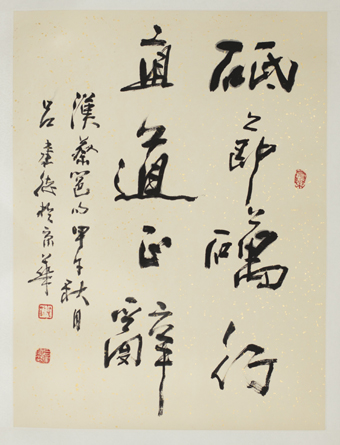 砥節礪行
直道正辭
漢蔡邕句甲午秋月
呂德於京華